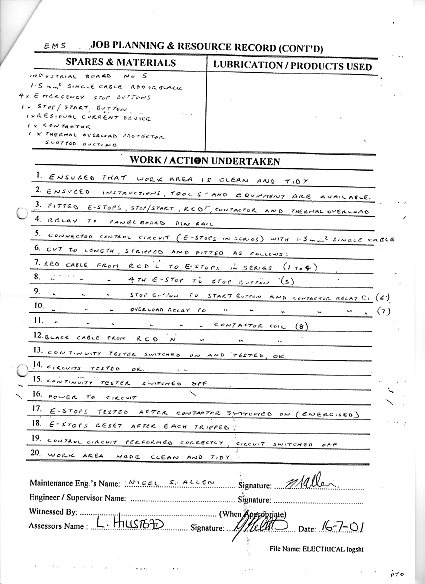 EMS JOB PLANNING & RESOURCE RECORD (CONT'D)
SPARES & MATERIALS
LUBRICATION / PRODUCTS USED
INDUSTRIAL BOARD No 5
1.5 mm² SINGLE CABLE RED OR BLACK
4 x EMERGENCY STOP BUTTONS
1 x STOP / START BUTTON
1 x RESIDUAL CURRENT DEVICE
1 x CONTACTOR
1 x THERMAL OVERLOAD PROTECTOR
SLOTTED DUCTING
WORK / ACTION UNDERTAKEN
1. ENSURED THAT WORK AREA IS CLEAN AND TIDY
2. ENSURED INSTRUCTIONS, TOOLS AND EQUIPMENT ARE AVAILABLE.
3. FITTED E-STOPS, STOP/START, RCD, CONTACTOR AND THERMAL OVERLOAD
4. RELAY TO PANELBOARD DIN RAIL
5. CONNECTED CONTROL CIRCUIT (E-STOPS IN SERIES) WITH 1.5 mm² SINGLE CABLE
6. CUT TO LENGTH, STRIPPED AND FITTED AS FOLLOWS:
7. RED CABLE FROM RCD L TO E-STOPS IN SERIES (1 TO 4)
8. " " " 4TH E-STOP TO STOP BUTTON (5)
9. " " " STOP BUTTON TO START BUTTON AND CONTACTOR RELAY (6)
10. " " " OVERLOAD RELAY TO " " " (7)
11. " " " " " CONTACTOR COIL (8)
12. BLACK CABLE FROM RCD N " " "
13. CONTINUITY TESTER SWITCHED ON AND TESTED, OK
14. CIRCUITS TESTED OK.
15. CONTINUITY TESTER SWITCHED OFF
16. POWER TO CIRCUIT
17. E-STOPS TESTED AFTER CONTACTOR SWITCHED ON (ENERGISED)
18. E-STOPS RESET AFTER EACH TRIPPED.
19. CONTROL CIRCUIT PERFORMED CORRECTLY, CIRCUIT SWITCHED OFF
20. WORK AREA MADE CLEAN AND TIDY
Maintenance Eng.'s Name: NIGEL S. ALLEN Signature: N Allen
Engineer / Supervisor Name: Signature:
Witnessed By: (When Appropriate)
Assessors Name: L. HILLSTEAD Signature: Date: 16-7-01
File Name: ELECTRICAL logsht
PTO